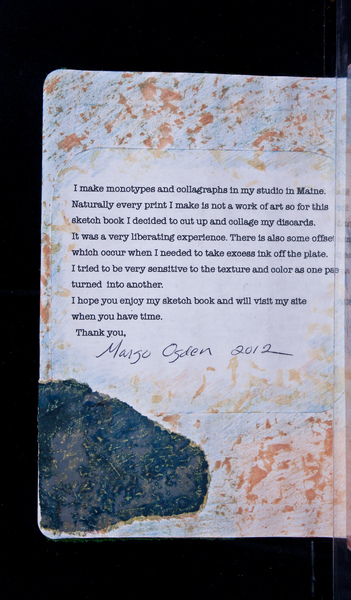 I make monotypes and collagraphs in my studio in Maine.
Naturally every print I make is not a work of art so for this
sketch book I decided to cut up and collage my discards.
It was a very liberating experience. There is also some offset
which occur when I needed to take excess ink off the plate.
I tried to be very sensitive to the texture and color as one
turned into another.
I hope you enjoy my sketch book and will visit my site
when you have time.
Thank you,
Margo Ogden 2012